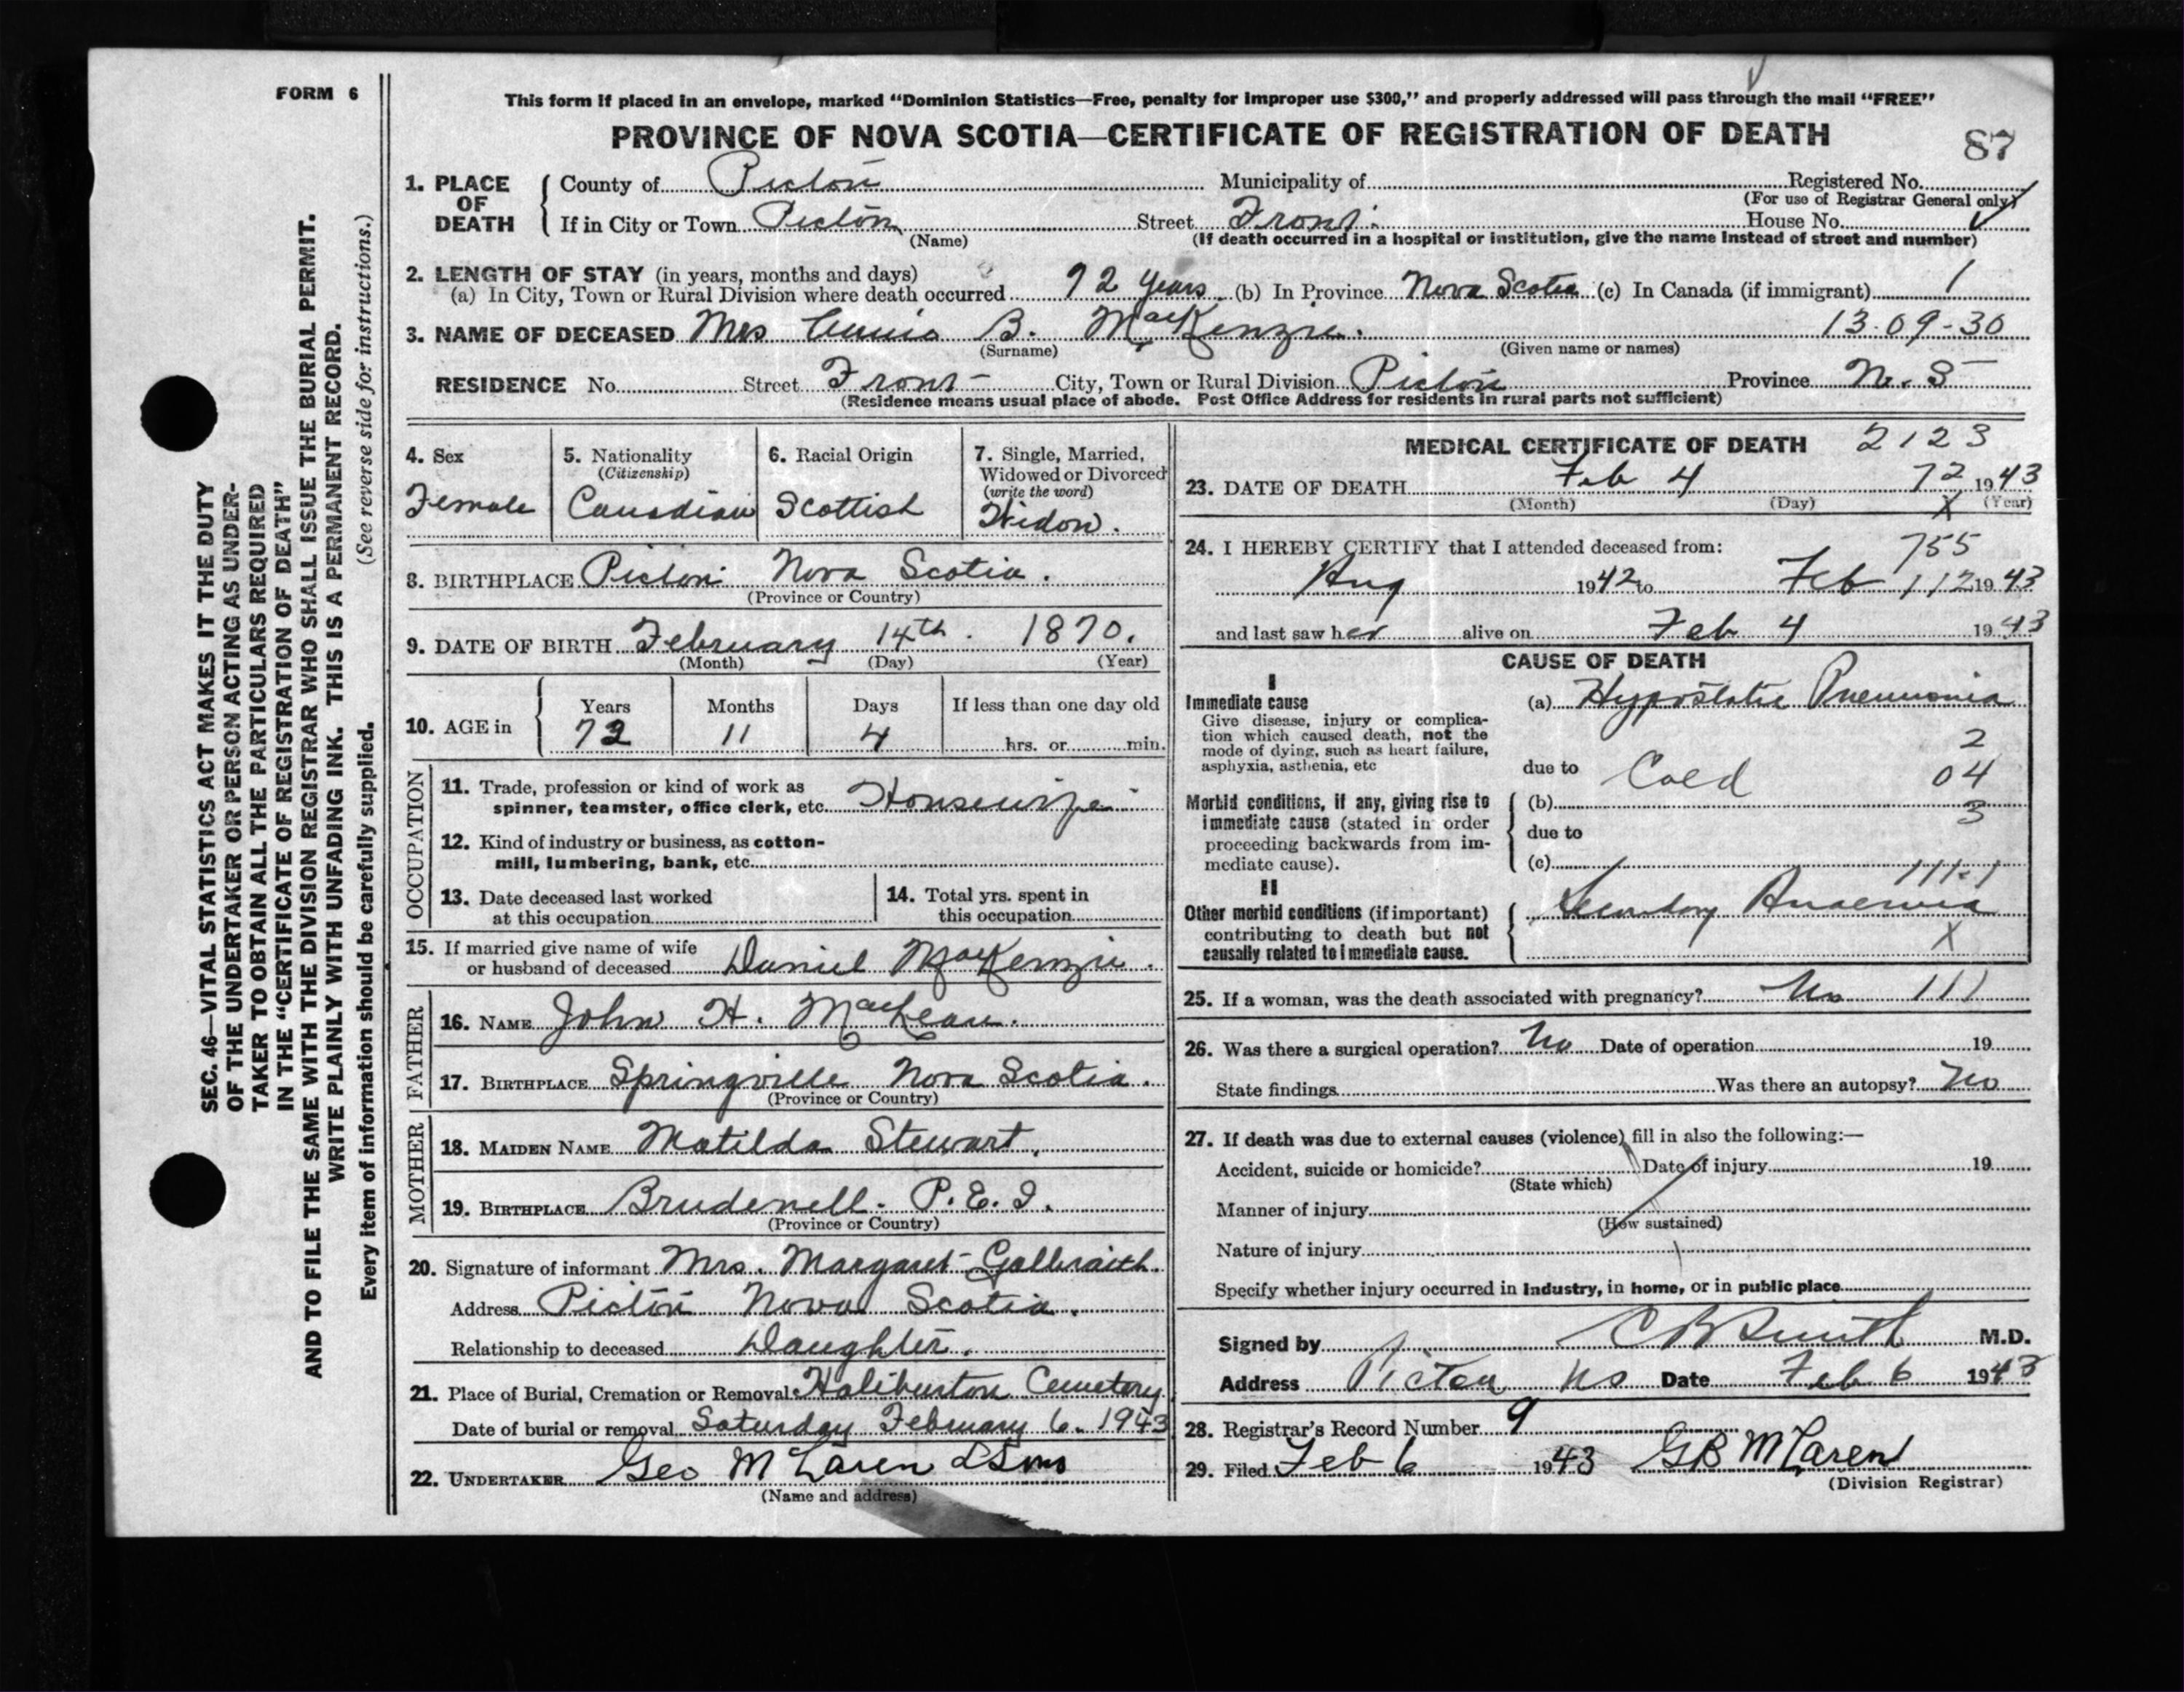 FORM 6
This form if placed in an envelope, marked "Dominion Statistics—Free, penalty for improper use $300," and properly addressed will pass through the mail "FREE"
PROVINCE OF NOVA SCOTIA—CERTIFICATE OF REGISTRATION OF DEATH
87
1. PLACE OF DEATH County of Pictou Municipality of Registered No.
(For use of Registrar General only)
If in City or Town Pictou Street Front House No.
(Name) (If death occurred in a hospital or institution, give the name instead of street and number)
2. LENGTH OF STAY (in years, months and days)
(a) In City, Town or Rural Division where death occurred 72 years (b) In Province Nova Scotia (c) In Canada (if immigrant) 1
3. NAME OF DECEASED Mrs Annie B. MacKenzie. 13-09-30
(Surname) (Given name or names)
RESIDENCE No. Street Front City, Town or Rural Division Pictou Province N.S
(Residence means usual place of abode. Post Office Address for residents in rural parts not sufficient)
4. Sex
Female
5. Nationality
(Citizenship)
Canadian
6. Racial Origin
Scottish
7. Single, Married,
Widowed or Divorced
(write the word)
Widow.
8. BIRTHPLACE Pictou Nova Scotia.
(Province or Country)
9. DATE OF BIRTH February 14th. 1870.
(Month) (Day) (Year)
10. AGE in Years Months Days If less than one day old
72 11 4 hrs. or min.
OCCUPATION
11. Trade, profession or kind of work as
spinner, teamster, office clerk, etc. Housewife
12. Kind of industry or business, as cotton-
mill, lumbering, bank, etc.
13. Date deceased last worked
at this occupation
14. Total yrs. spent in
this occupation
15. If married give name of wife
or husband of deceased Daniel MacKenzie.
FATHER
16. NAME John H. MacLean.
17. BIRTHPLACE Springville Nova Scotia.
(Province or Country)
MOTHER
18. MAIDEN NAME Matilda Stewart.
19. BIRTHPLACE Brudenell. P.E.I.
(Province or Country)
20. Signature of informant Mrs. Margaret Galbraith.
Address Pictou Nova Scotia.
Relationship to deceased Daughter.
21. Place of Burial, Cremation or Removal Haliburton Cemetery
Date of burial or removal Saturday February 6. 1943
22. UNDERTAKER Geo McLaren & Sons
(Name and address)
MEDICAL CERTIFICATE OF DEATH 2123
23. DATE OF DEATH Feb 4 72 1943
(Month) (Day) X (Year)
24. I HEREBY CERTIFY that I attended deceased from:
755
Aug 1942 to Feb 112 1943
and last saw her alive on Feb 4 1943
CAUSE OF DEATH
I
Immediate cause
Give disease, injury or complica-
tion which caused death, not the
mode of dying, such as heart failure,
asphyxia, asthenia, etc
(a) Hypostatic Pneumonia
2
due to Cold 04
Morbid conditions, if any, giving rise to
immediate cause (stated in order
proceeding backwards from im-
mediate cause).
(b) 3
due to
(c)
111-1
II
Other morbid conditions (if important)
contributing to death but not
causally related to immediate cause.
Secondary Anaemia
X
25. If a woman, was the death associated with pregnancy? No 111
26. Was there a surgical operation? No Date of operation 19
State findings Was there an autopsy? No
27. If death was due to external causes (violence) fill in also the following:—
Accident, suicide or homicide? Date of injury 19
(State which)
Manner of injury
(How sustained)
Nature of injury
Specify whether injury occurred in Industry, in home, or in public place
Signed by C B Smith M.D.
Address Pictou NS Date Feb 6 1943
28. Registrar's Record Number 9
29. Filed Feb 6 1943 GB McLaren
(Division Registrar)
SEC. 46—VITAL STATISTICS ACT MAKES IT THE DUTY
OF THE UNDERTAKER OR PERSON ACTING AS UNDER-
TAKER TO OBTAIN ALL THE PARTICULARS REQUIRED
IN THE "CERTIFICATE OF REGISTRATION OF DEATH"
AND TO FILE THE SAME WITH THE DIVISION REGISTRAR WHO SHALL ISSUE THE BURIAL PERMIT.
WRITE PLAINLY WITH UNFADING INK. THIS IS A PERMANENT RECORD.
Every item of information should be carefully supplied. (See reverse side for instructions.)